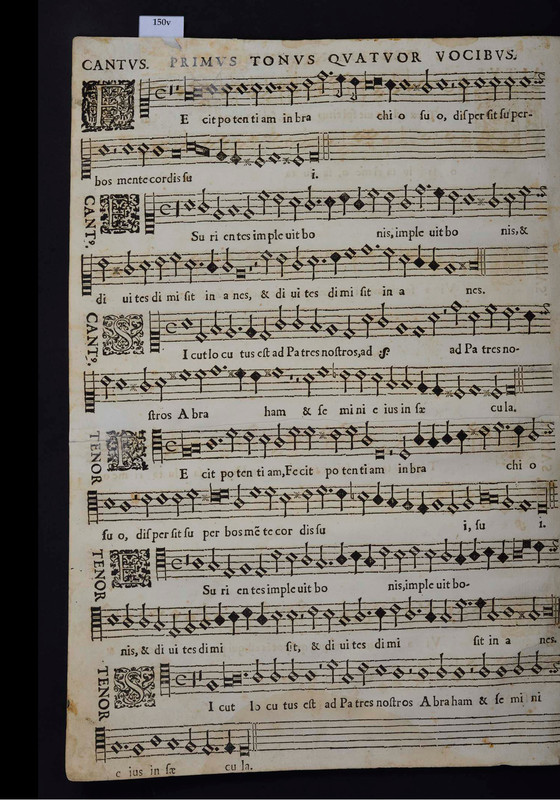 150v
CANTVS. PRIMVS TONVS QVATVOR VOCIBVS.
E cit po ten ti am in bra chi o su o, disper sit su per-
bos mente cordis su i.
CANT9. Su ri entes im ple uit bo nis, imple uit bo nis, &
di ui tes di mi sit in a nes, & di ui tes di mi sit in a nes.
CANT9. S I cut lo cu tus est ad Pa tres nostros, ad ad Pa tres no-
stros A bra ham & se mi ni e ius in sæ cu la.
TENOR E cit po ten ti am, Fe cit po ten ti am in bra chi o
su o, dis per sit su per bos mẽ te cor dis su i, su i.
TENOR E Su ri en tes imple uit bo nis, imple uit bo-
nis, & di ui tes di mi sit, & di ui tes di mi sit in a nes.
TENOR S I cut lo cu tus est ad Pa tres nostros A bra ham & se mi ni
e ius in sæ cu la.